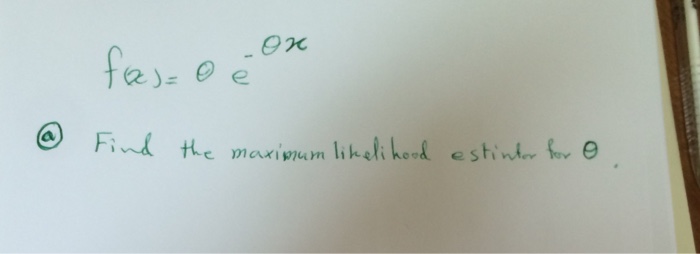 f(x) = θ e^{-θx}
ⓐ Find the maximum likelihood estimtor for θ.